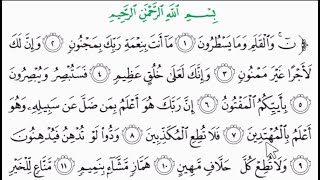 بِسْمِ ٱللَّهِ ٱلرَّحْمَٰنِ ٱلرَّحِيمِ
نٓ ۚ وَٱلْقَلَمِ وَمَا يَسْطُرُونَ ١ مَآ أَنتَ بِنِعْمَةِ رَبِّكَ بِمَجْنُونٍ ٢ وَإِنَّ لَكَ
لَأَجْرًا غَيْرَ مَمْنُونٍ ٣ وَإِنَّكَ لَعَلَىٰ خُلُقٍ عَظِيمٍ ٤ فَسَتُبْصِرُ وَيُبْصِرُونَ
٥ بِأَييِّكُمُ ٱلْمَفْتُونُ ٦ إِنَّ رَبَّكَ هُوَ أَعْلَمُ بِمَن ضَلَّ عَن سَبِيلِهِۦ وَهُوَ
أَعْلَمُ بِٱلْمُهْتَدِينَ ٧ فَلَا تُطِعِ ٱلْمُكَذِّبِينَ ٨ وَدُّوا۟ لَوْ تُدْهِنُ فَيُدْهِنُونَ
٩ وَلَا تُطِعْ كُلَّ حَلَّافٍ مَّهِينٍ ١٠ هَمَّازٍ مَّشَّآءٍۭ بِنَمِيمٍ ١١ مَّنَّاعٍ لِّلْخَيْرِ